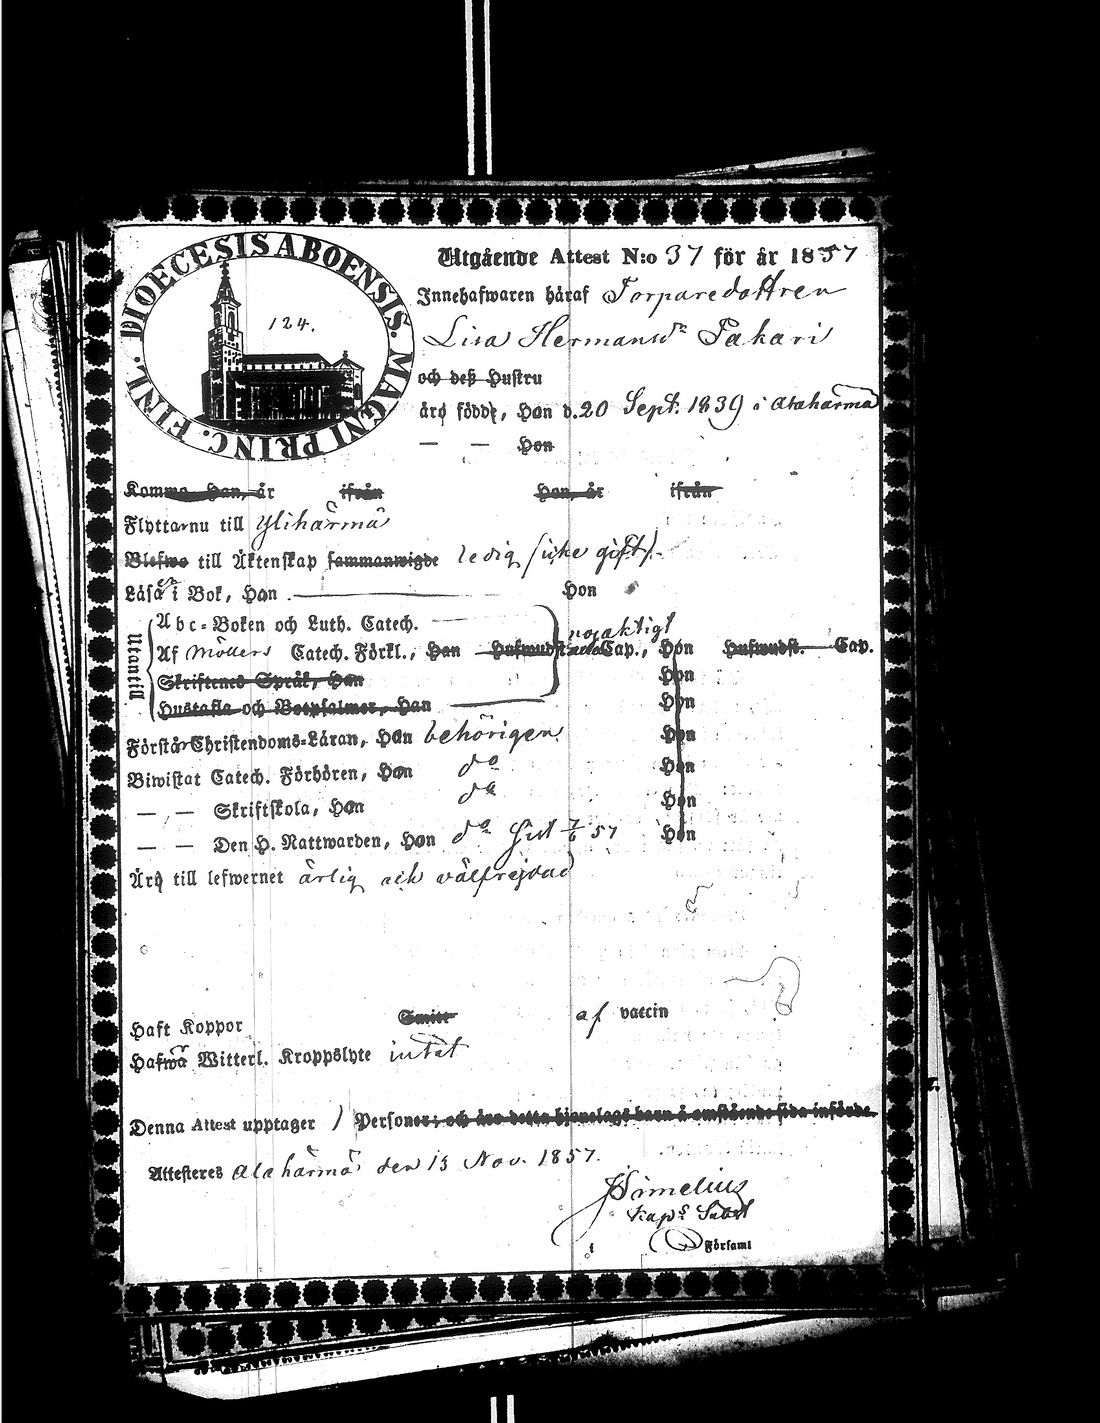 DIOECESIS ABOENSIS. MAGNI PRINC. FINL.
124.
Utgående Attest N:o 37 för år 1857
Innehafwaren häraf Torparedottren
Lisa Hermansdr Pakari
och deß Hustru
äro födde, Han d. 20 Sept. 1839 i Alahärmä
— — Hon
Komma Han, år ifrån Hon, år ifrån
Flytta nu till Ylihärmä
Blefwo till Äktenskap sammanwigde ledig (icke gift).
Läsa i Bok, Han Hon
Utantill
Abc-Boken och Luth. Catech.
nojaktigt
Af Möllers Catech. Förkl., Han Hufwudst. Cap., Hon Hufwudst. Cap.
Skriftenes Språk, Han Hon
Hustafla och Botpsalmer, Han Hon
Förstår Christendoms-Läran, Han behörigen Hon
Biwistat Catech. Förhören, Han do Hon
— — Skriftskola, Han do Hon
— — Den H. Nattwarden, Han do sist 7/6 57 Hon
Äro till lefwernet ärlig och välfrejdad
Haft Koppor Smitt af vaccin
Hafwa Witterl. Kroppslyte intet
Denna Attest upptager 1 Personer; och äro detta hjonelags barn å omstående sida införde.
Attesteres Alahärmä den 13 Nov. 1857.
Simelius
Kaps Subst
i Församl